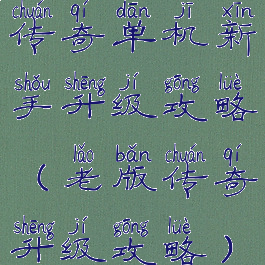 chuán qí dān jī xīn
传奇单机新
shǒu shēng jí gōng lüè
手升级攻略
lǎo bǎn chuán qí
（老版传奇
shēng jí gōng lüè
升级攻略）